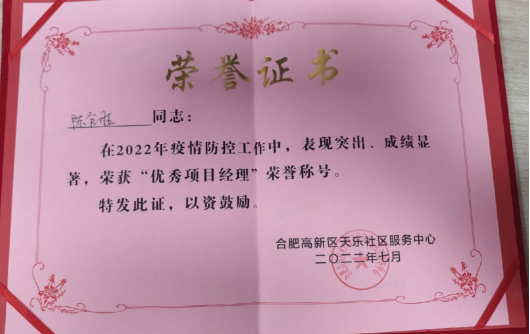 荣誉证书
同志：
在2022年疫情防控工作中，表现突出、成绩显
著，荣获“优秀项目经理”荣誉称号。
特发此证，以资鼓励。
合肥高新区天乐社区服务中心
二〇二二年七月